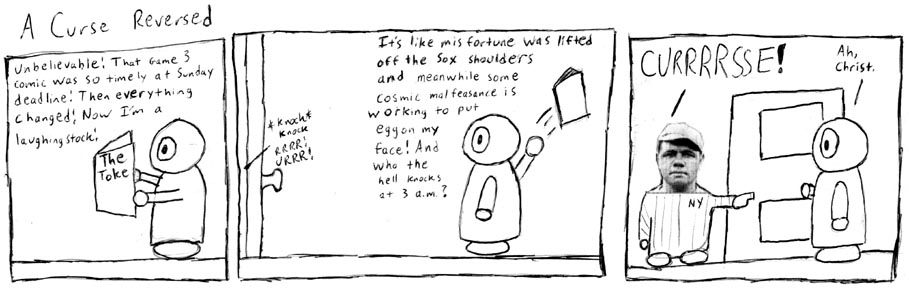 A Curse Reversed
Unbelievable! That Game 3
comic was so timely at Sunday
deadline! Then everything
changed! Now I'm a
laughing stock!
The
Toke
It's like misfortune was lifted
off the Sox shoulders
and meanwhile some
cosmic malfeasance is
working to put
egg on my
face! And
who the
hell knocks
at 3 a.m.?
*Knock*
Knock
RRRR!
URRR!
CURRRRSSE!
NY
Ah,
Christ.